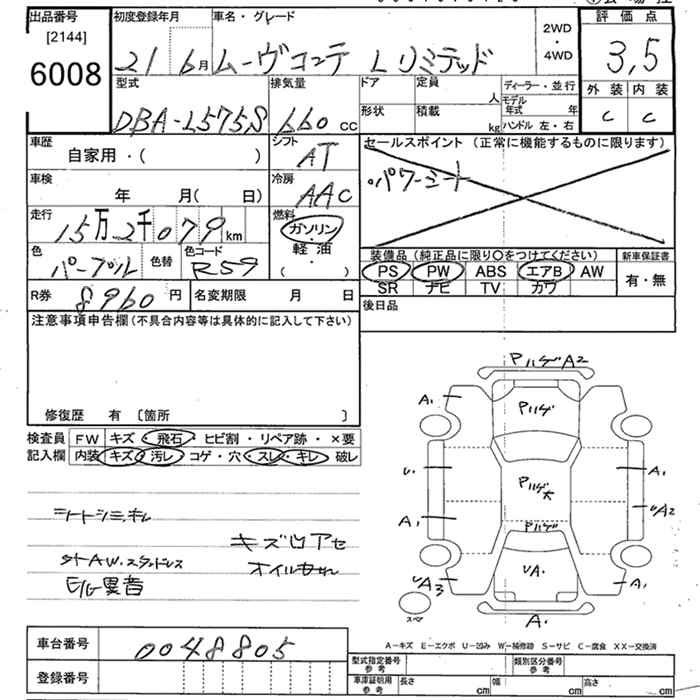 出品番号 初度登録年月 車名・グレード 2WD 評価点
[2144] ・
6008 21 6月 ムーヴコンテ Lリミテッド 4WD 3,5
型式 排気量 ドア 定員 人 ディーラー・並行 外装 内装
DBA-L575S 660 cc 形状 積載 kg モデル年式 年 C C
ハンドル 左・右
車歴 シフト セールスポイント (正常に機能するものに限ります)
自家用・( ) AT パワーシート
車検 冷房
年 月( 日) AAC
走行 燃料
15万2千079km ガソリン・
色 色替 色コード 軽油・ 装備品 (純正品に限り○をつけてください) 新車保証書
パープル R59 ( ) PS PW ABS エアB AW 有・無
R券 8960円 名変期限 月 日 SR ナビ TV カワ
注意事項申告欄(不具合内容等は具体的に記入して下さい) 後日品
修復歴 有 [箇所 ]
検査員 FW キズ・飛石・ヒビ割・リペア跡・×要
記入欄 内装 キズ・汚レ・コゲ・穴・スレ・キレ・破レ
PハゲA2
A1 Pハゲ
U Pハゲ大 A1
A1 Pハゲ UA2
UA3 UA1 A1
スペア A1
シートシミ、キレ
キズ凹アセ
社AW.スタッドレス
E/G異音
A-キズ E-エクボ U-凹み W-補修跡 S-サビ C-腐食 XX-交換済
車台番号 0048805 型式指定番号 参考 類別区分番号 参考
登録番号 車庫証明用 参考 長さ cm 幅 cm 高さ cm